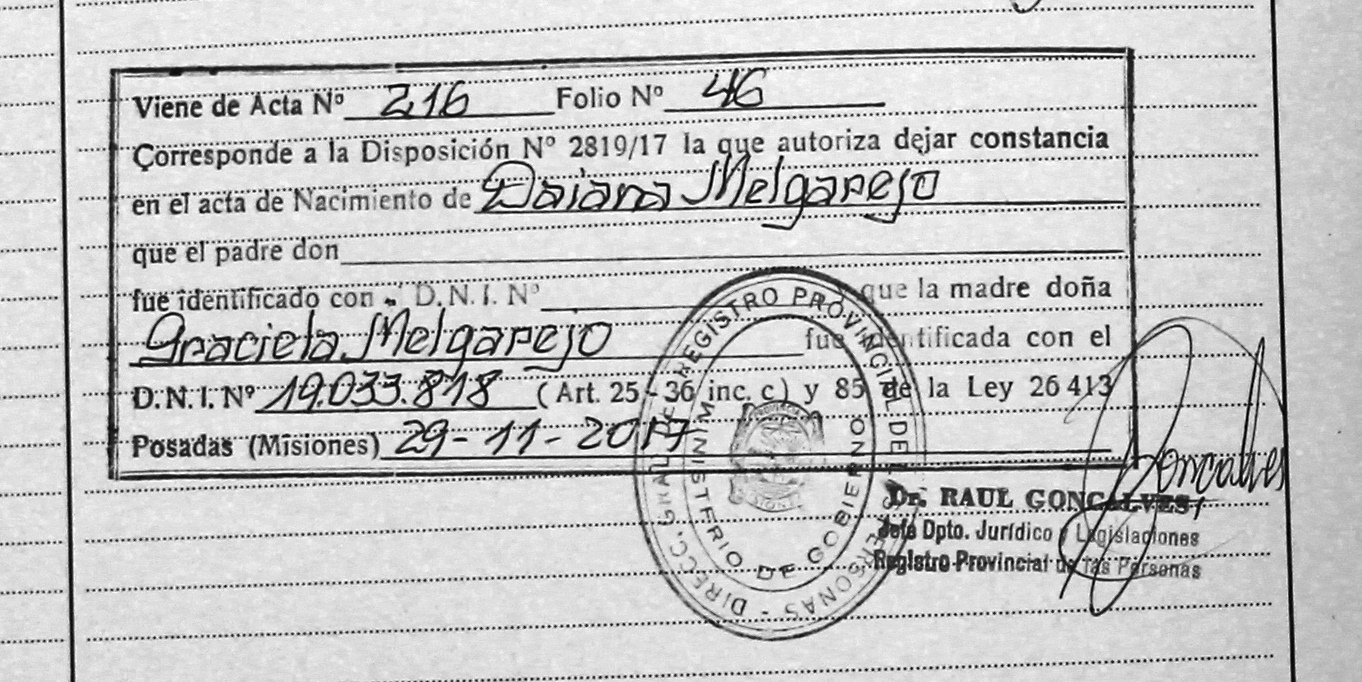 Viene de Acta Nº 216 Folio Nº 46
Corresponde a la Disposición Nº 2819/17 la que autoriza dejar constancia
en el acta de Nacimiento de Daiana Melgarejo
que el padre don
fue identificado con D.N.I. Nº que la madre doña
Graciela Melgarejo fue identificada con el
D.N.I. Nº 19.033.818 (Art. 25 - 36 inc. c) y 85 de la Ley 26 413
Posadas (Misiones) 29-11-2017
DIRECC. GRAL. DE REGISTRO PROVINCIAL DE LAS PERSONAS
MINISTERIO DE GOBIERNO
Goncalves
Dr. RAUL GONCALVES
Jefe Dpto. Jurídico y Legislaciones
Registro Provincial de las Personas